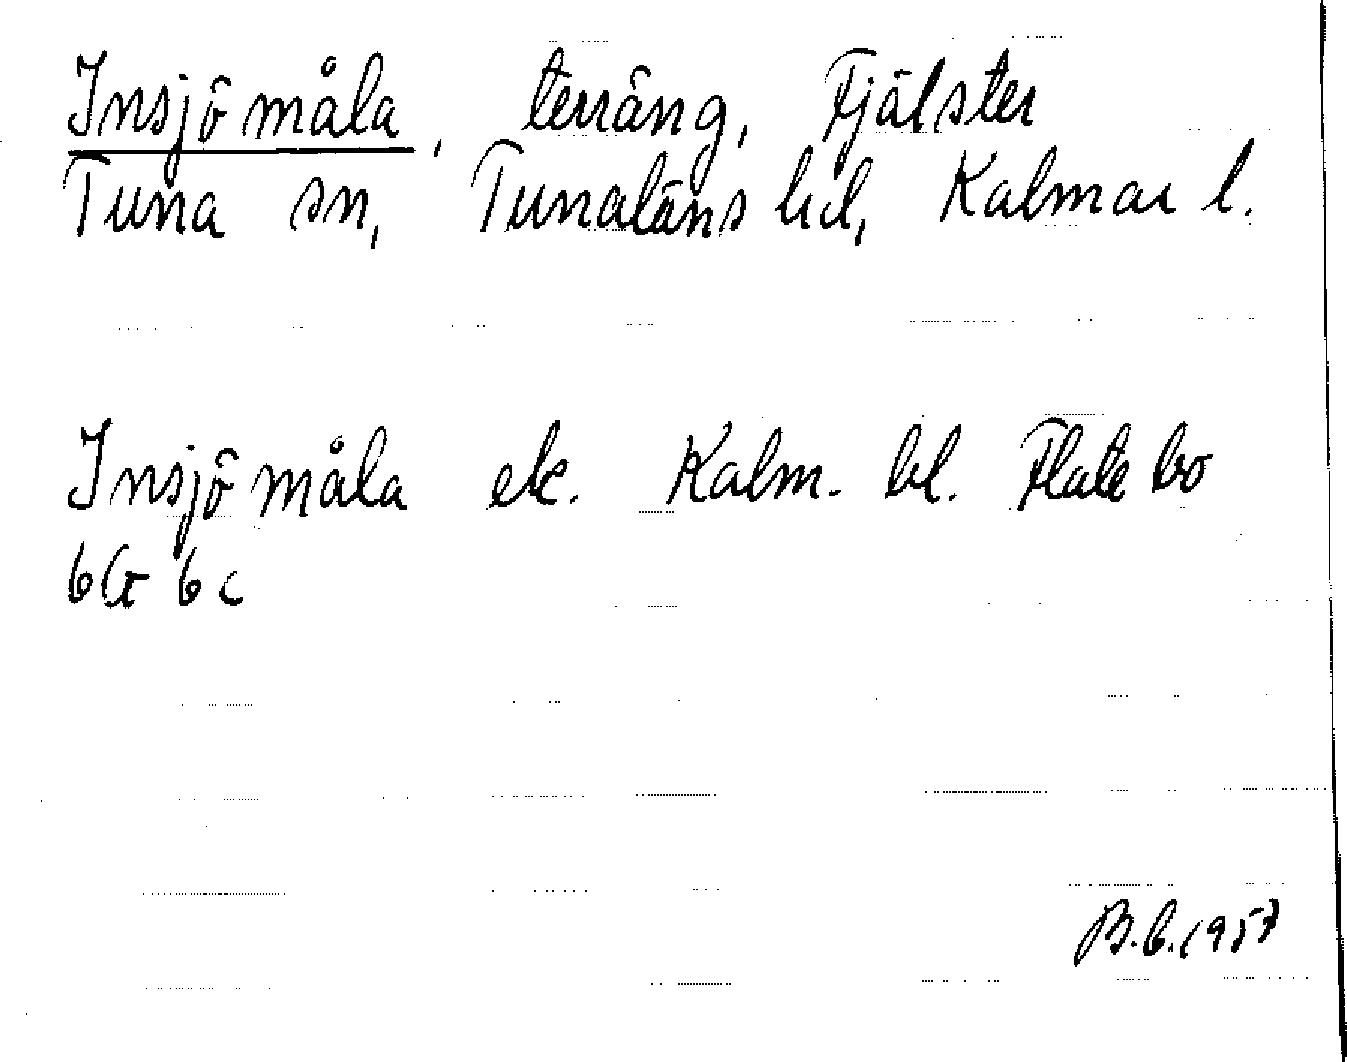 Insjömåla, terräng, Fjälster
Tuna sn, Tunaläns hd, Kalmar l.
Insjömåla ek. Kalm. bl. Flatebo
6G 6c
B.C. 1957